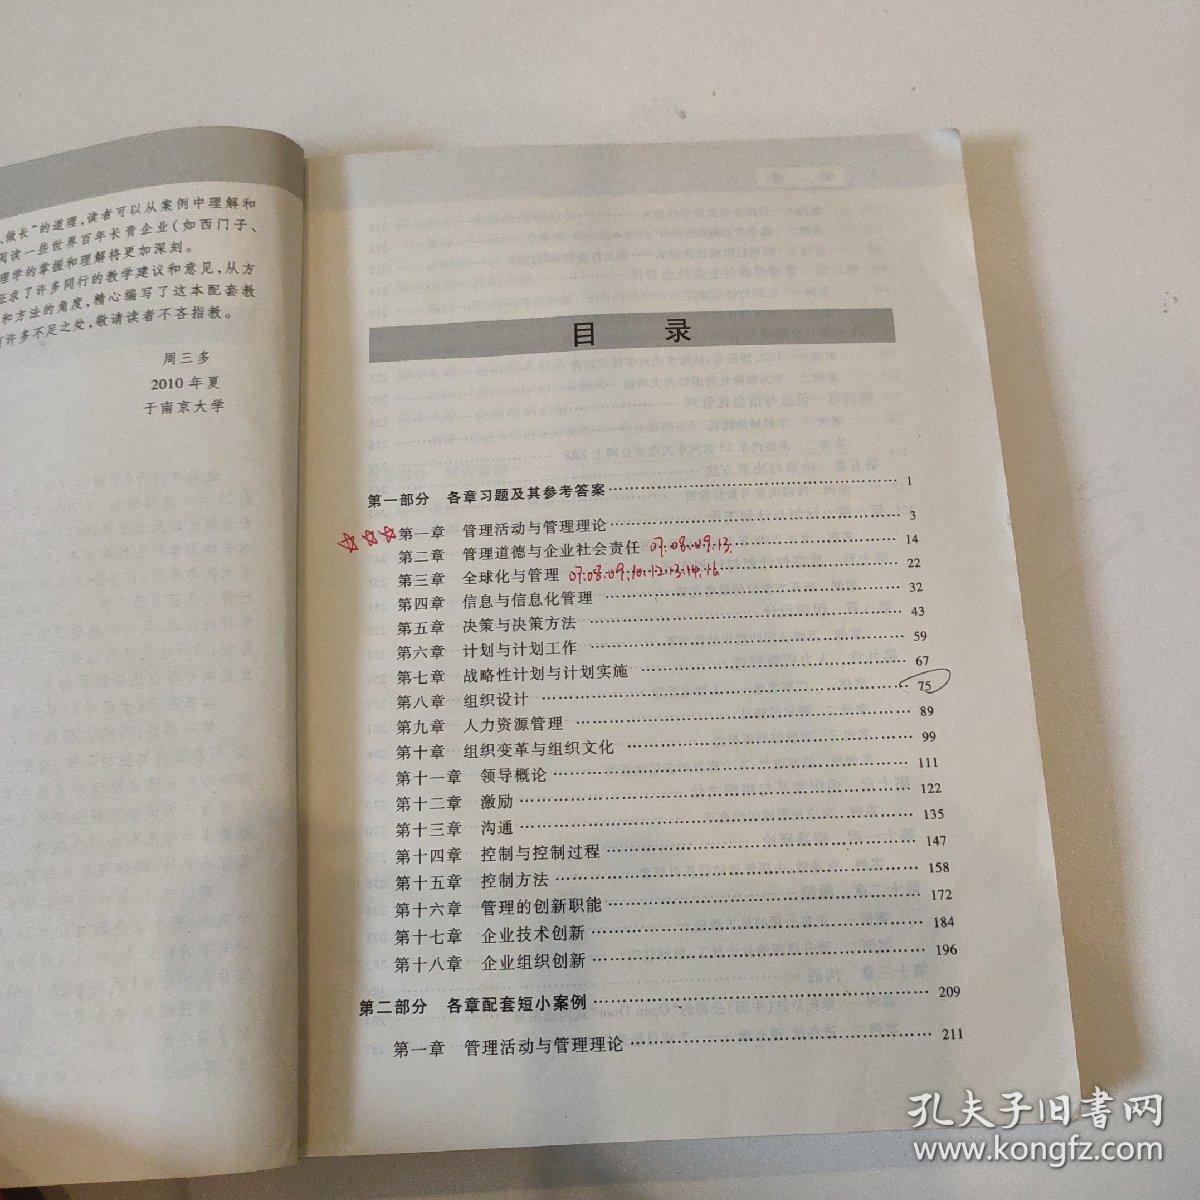 、做长”的道理,读者可以从案例中理解和
阅读一些世界百年长青企业(如西门子、
理学的掌握和理解将更加深刻。
征求了许多同行的教学建议和意见,从方
和方法的角度,精心编写了这本配套教
许多不足之处,敬请读者不吝指教。
周三多
2010年夏
于南京大学
目 录
第一部分 各章习题及其参考答案 …… 1
☆☆☆第一章 管理活动与管理理论 …… 3
第二章 管理道德与企业社会责任 07.08.09.13. …… 14
第三章 全球化与管理 07.08.09.10.12.13.14.16 …… 22
第四章 信息与信息化管理 …… 32
第五章 决策与决策方法 …… 43
第六章 计划与计划工作 …… 59
第七章 战略性计划与计划实施 …… 67
第八章 组织设计 …… 75
第九章 人力资源管理 …… 89
第十章 组织变革与组织文化 …… 99
第十一章 领导概论 …… 111
第十二章 激励 …… 122
第十三章 沟通 …… 135
第十四章 控制与控制过程 …… 147
第十五章 控制方法 …… 158
第十六章 管理的创新职能 …… 172
第十七章 企业技术创新 …… 184
第十八章 企业组织创新 …… 196
第二部分 各章配套短小案例 …… 209
第一章 管理活动与管理理论 …… 211
孔夫子旧书网
www.kongfz.com